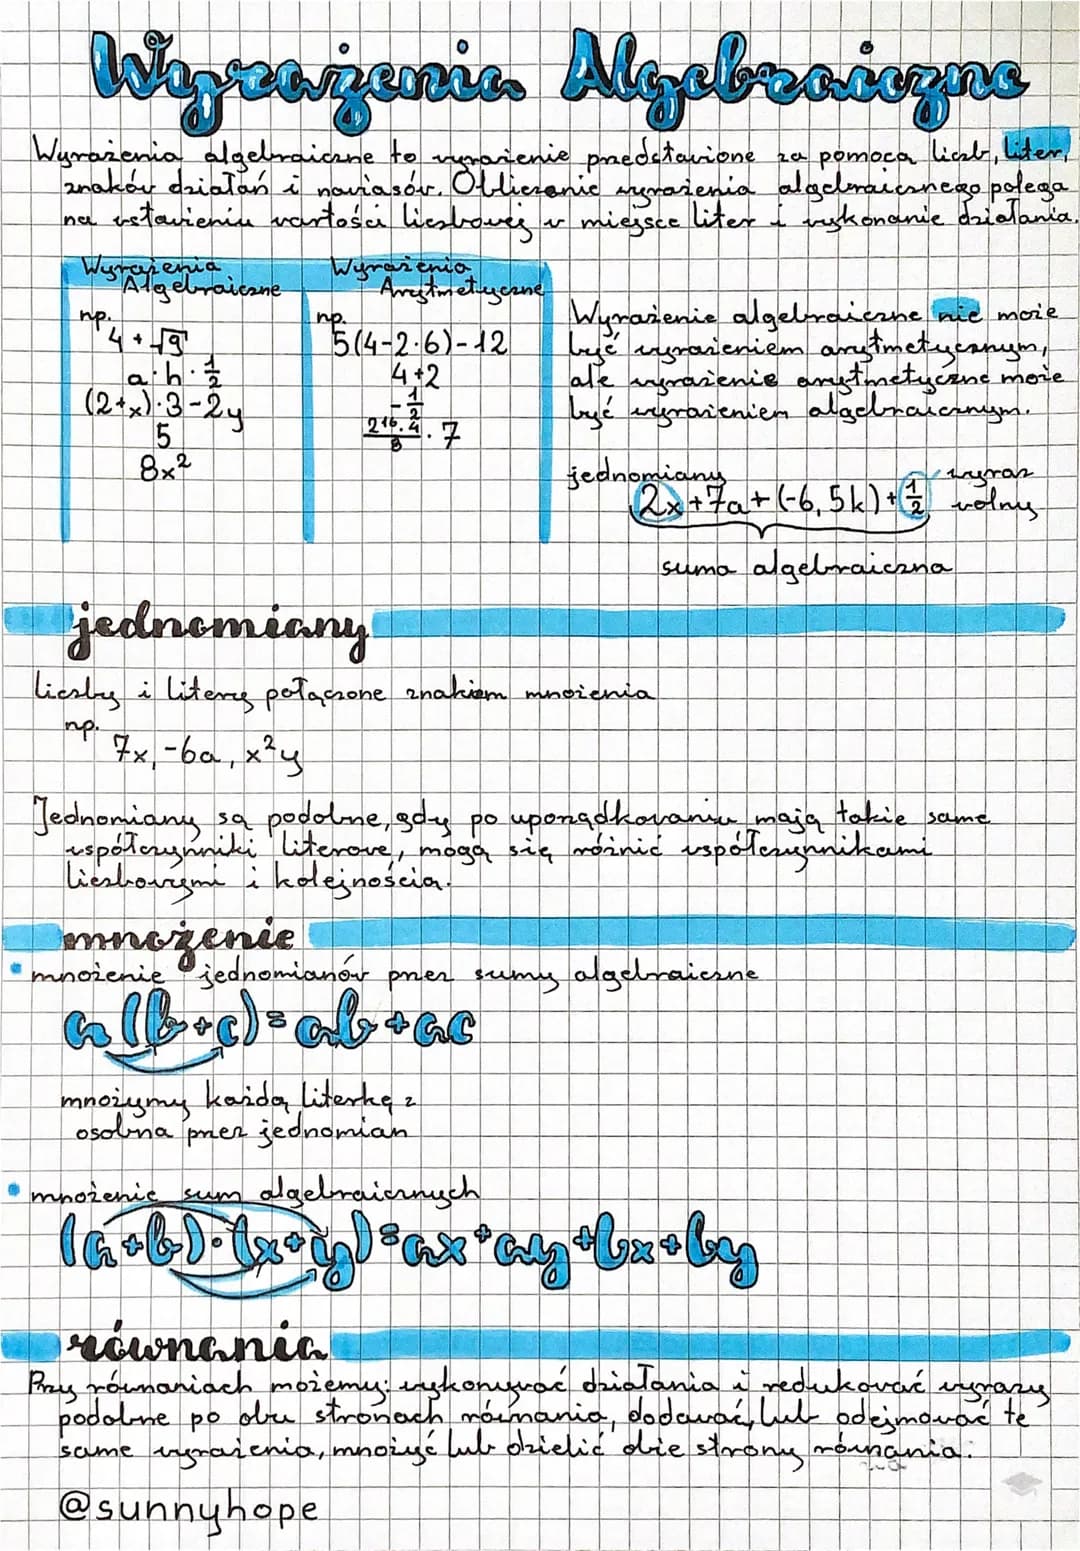 Wyrażenia Algebraiczne
Wyrażenia algebraiczne to wyrażenie przedstawione za pomocą liczb, liter,
znaków działań i nawiasów. Obliczanie wyrażenia algebraicznego polega
na wstawieniu wartości liczbowej w miejsce liter i wykonanie działania.
Wyrażenia
Algebraiczne
np.
4+√9
a·h·1/2
(2+x)·3-2y
5
8x²
Wyrażenia
Arytmetyczne
np.
5(4-2·6)-12
4+2
-1/2
Wyrażenie algebraiczne nie może
być wyrażeniem arytmetycznym,
ale wyrażenie arytmetyczne może
być wyrażeniem algebraicznym.
jednomiany
wyraz
wolny
2x+7a+(-6,5k)+1/2
suma algebraiczna
jednomiany
liczby i litery połączone znakiem mnożenia
np.
7x,-6a, x²y
Jednomiany są podobne, gdy po uporządkowaniu mają takie same
współczynniki literowe, mogą się różnić współczynnikami
liczbowymi i kolejnością.
mnożenie
• mnożenie jednomianów przez sumy algebraiczne
a(b+c)=ab+ac
mnożymy każdą literkę z
osobna przez jednomian
• mnożenie sum algebraicznych
(a+b)·(x+y)=ax+ay+bx+by
równania
Przy równaniach możemy: wykonywać działania i redukować wyrazy
podobne po obu stronach równania, dodawać, lub odejmować te
same wyrażenia, mnożyć lub dzielić obie strony równania.
@sunnyhope